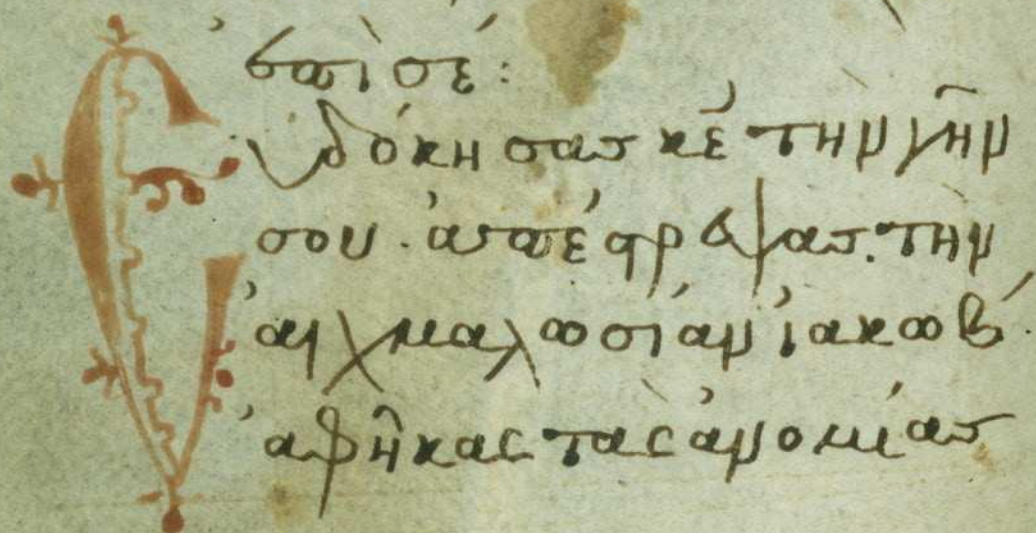 ἐπὶ σέ:
Εὐδόκησας κ̅ε̅ τὴν γῆν
σου. ἀπέστρεψας τὴν
αἰχμαλωσίαν ἰακώβ.
ἀφῆκας τὰς ἀνομίας